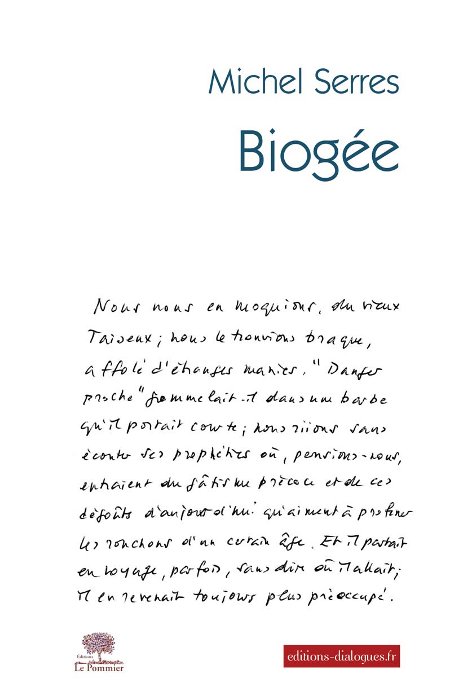 Michel Serres
Biogée
Nous nous en moquions, du vieux
Taiseux ; nous le trouvions braque,
affolé d'étranges manies. "Danger
proche" grommelait-il dans une barbe
qu'il portait courte ; nous riions sans
écouter ses prophéties où, pensions-nous,
entraient du gâtisme précoce et de ces
dégoûts d'aujourd'hui qu'aiment à proférer
les ronchons d'un certain âge. Et il partait
en voyage, parfois, sans dire où il allait ;
il en revenait toujours plus préoccupé.
Éditions
Le Pommier
editions-dialogues.fr